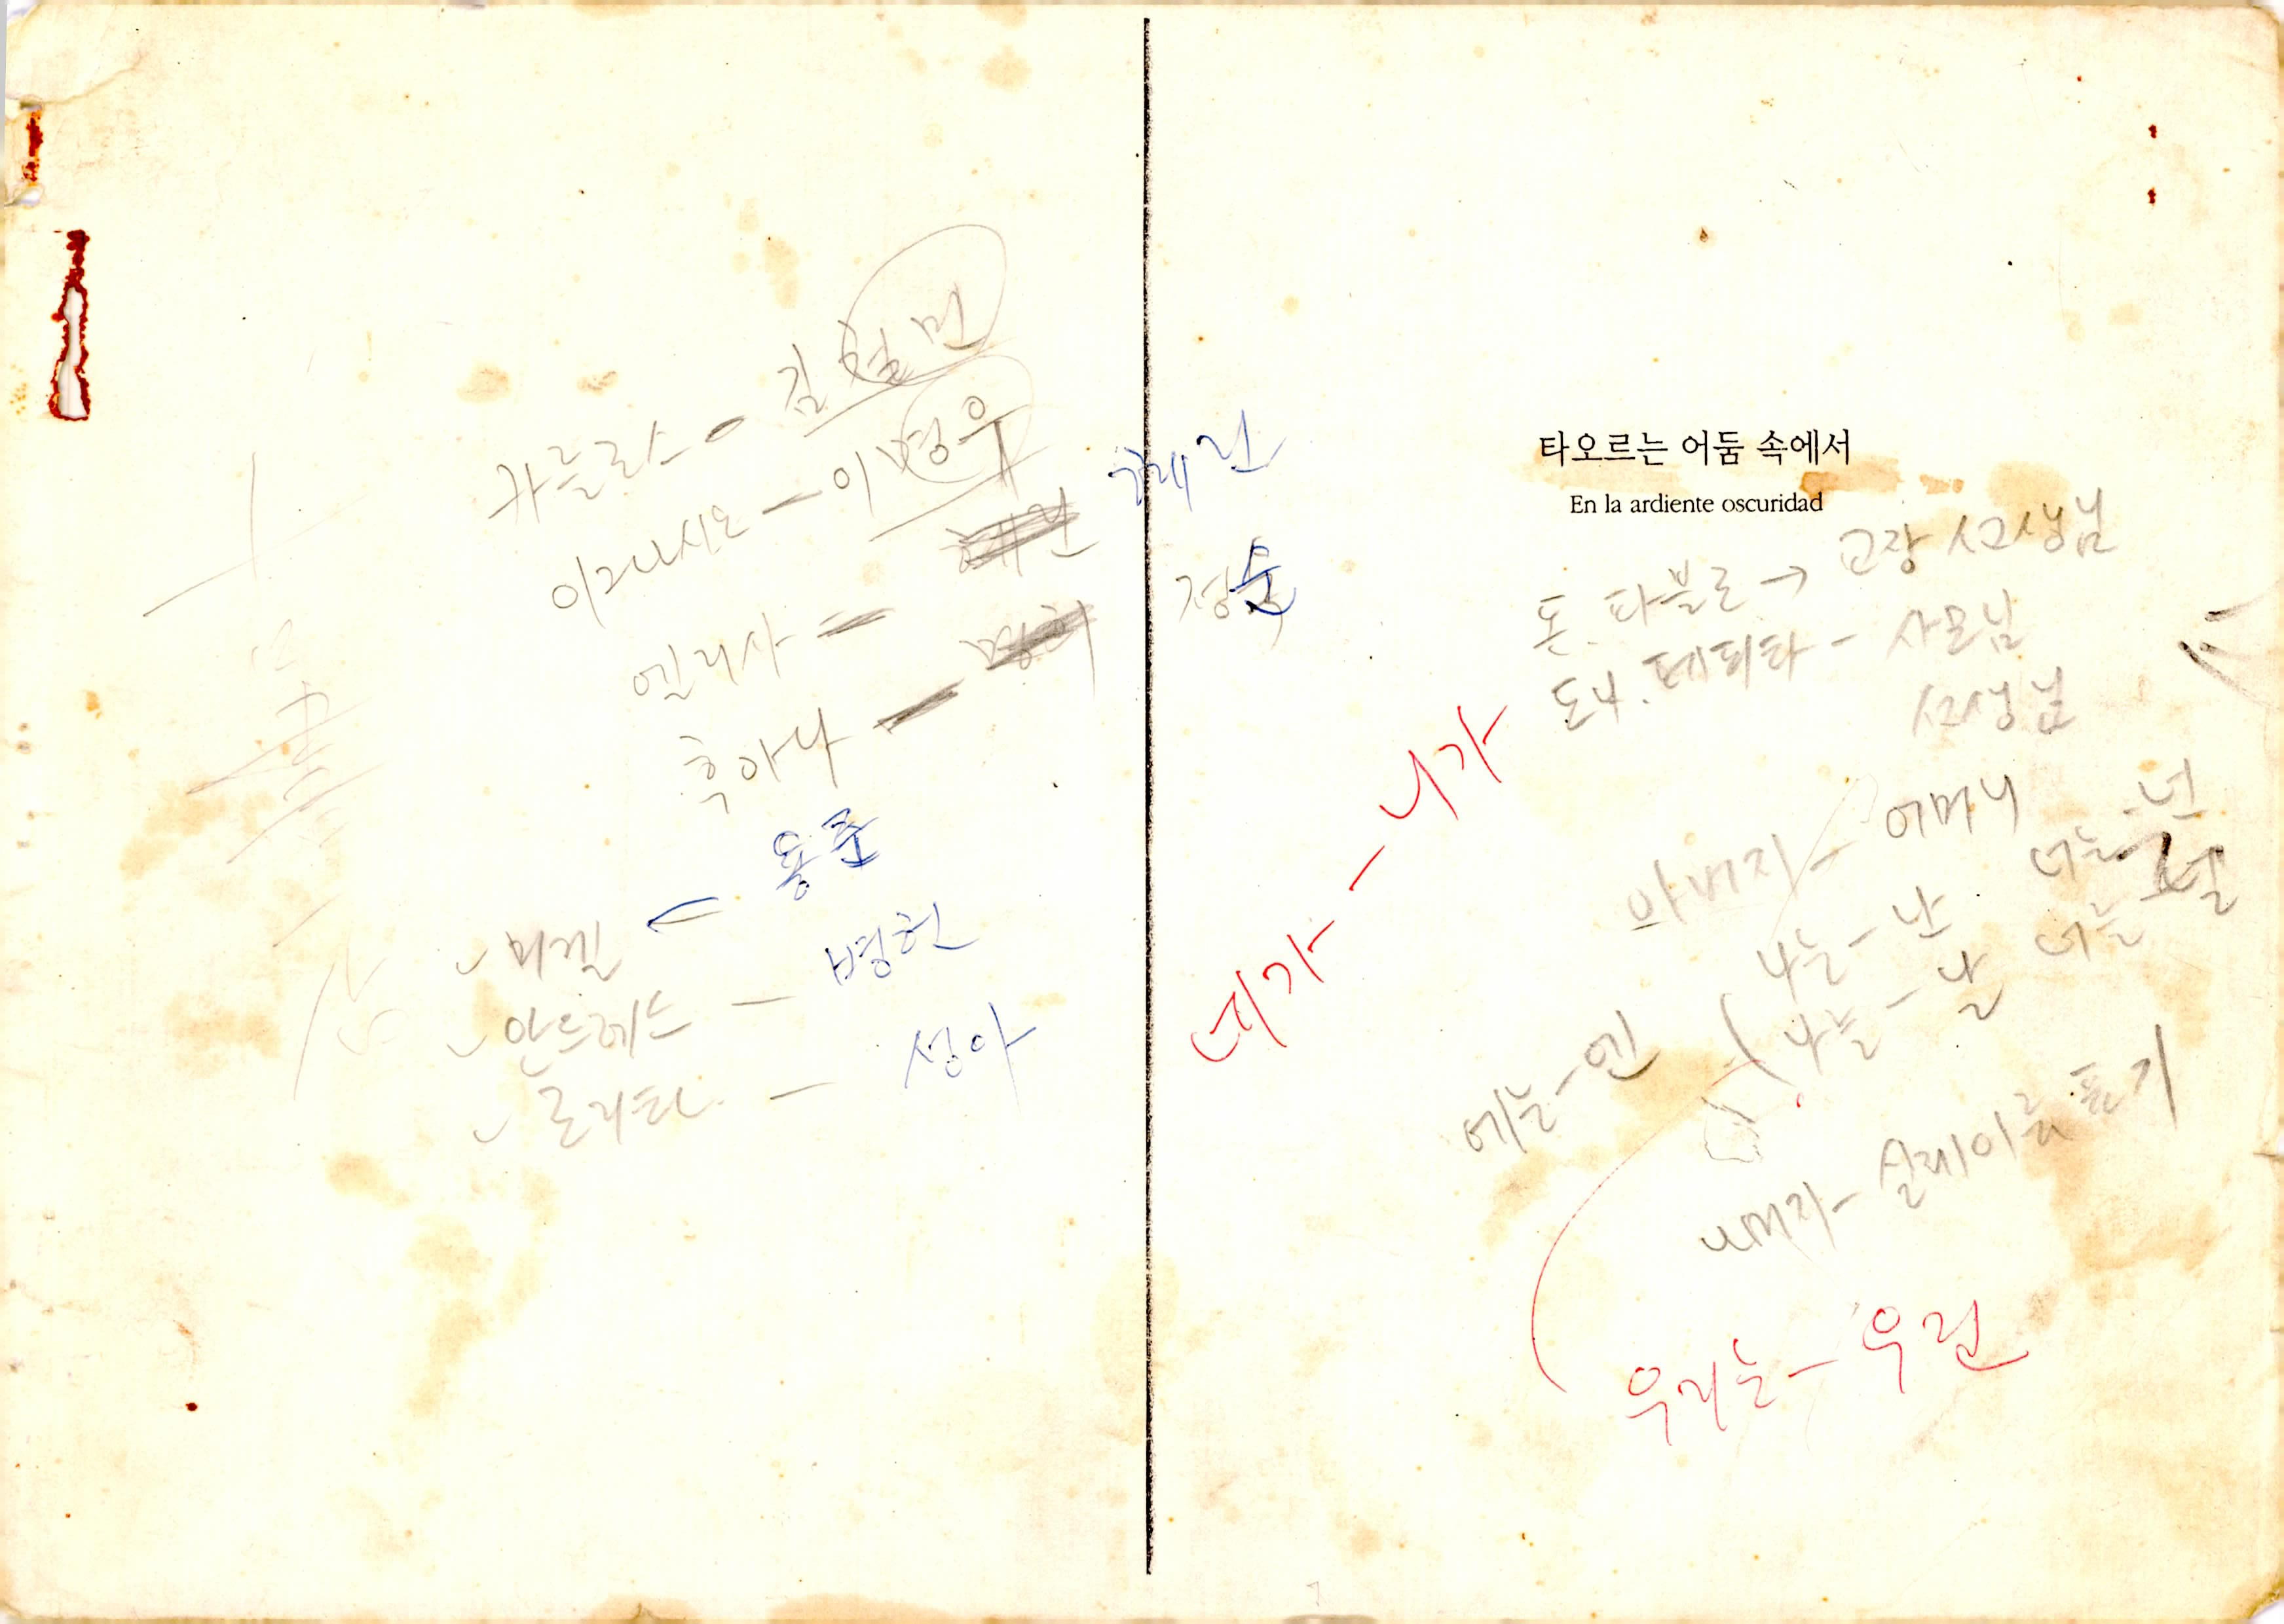 카를로스 - 김
이그나시오 - 이병우
엘리사 -
후아나 - 정숙
미겔 ← 용준
안드레스 - 병헌
로리타 - 성아
타오르는 어둠 속에서
En la ardiente oscuridad
돈. 파블로 → 교장 선생님
도냐. 페피타 - 사모님
선생님
네가 - 니가
아버지 - 어머니
나는 - 난 너는 - 넌
나는 - 날 너는 널
에는 - 엔
우리는 - 우린